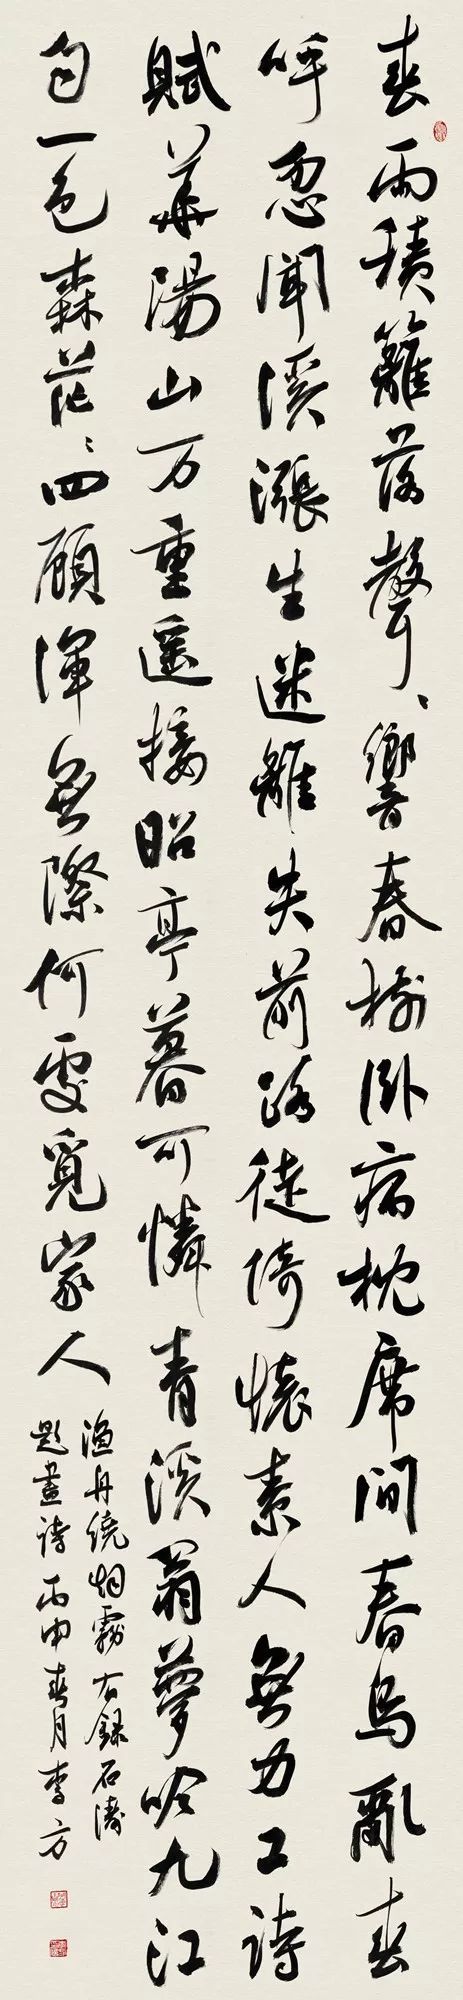 春雨積籬落聲〻響春樹卧病枕席間春鳥亂春
呼忽聞溪漲生迷離失前路徒倚懷素人無力工詩
賦華陽山万重遥接昭亭暮可憐青溪翁夢吟九江
句一色森茫〻四顧渾無際何處覓家人
漁舟繞烟霧 右録石濤
題畫詩 丙申春月李方